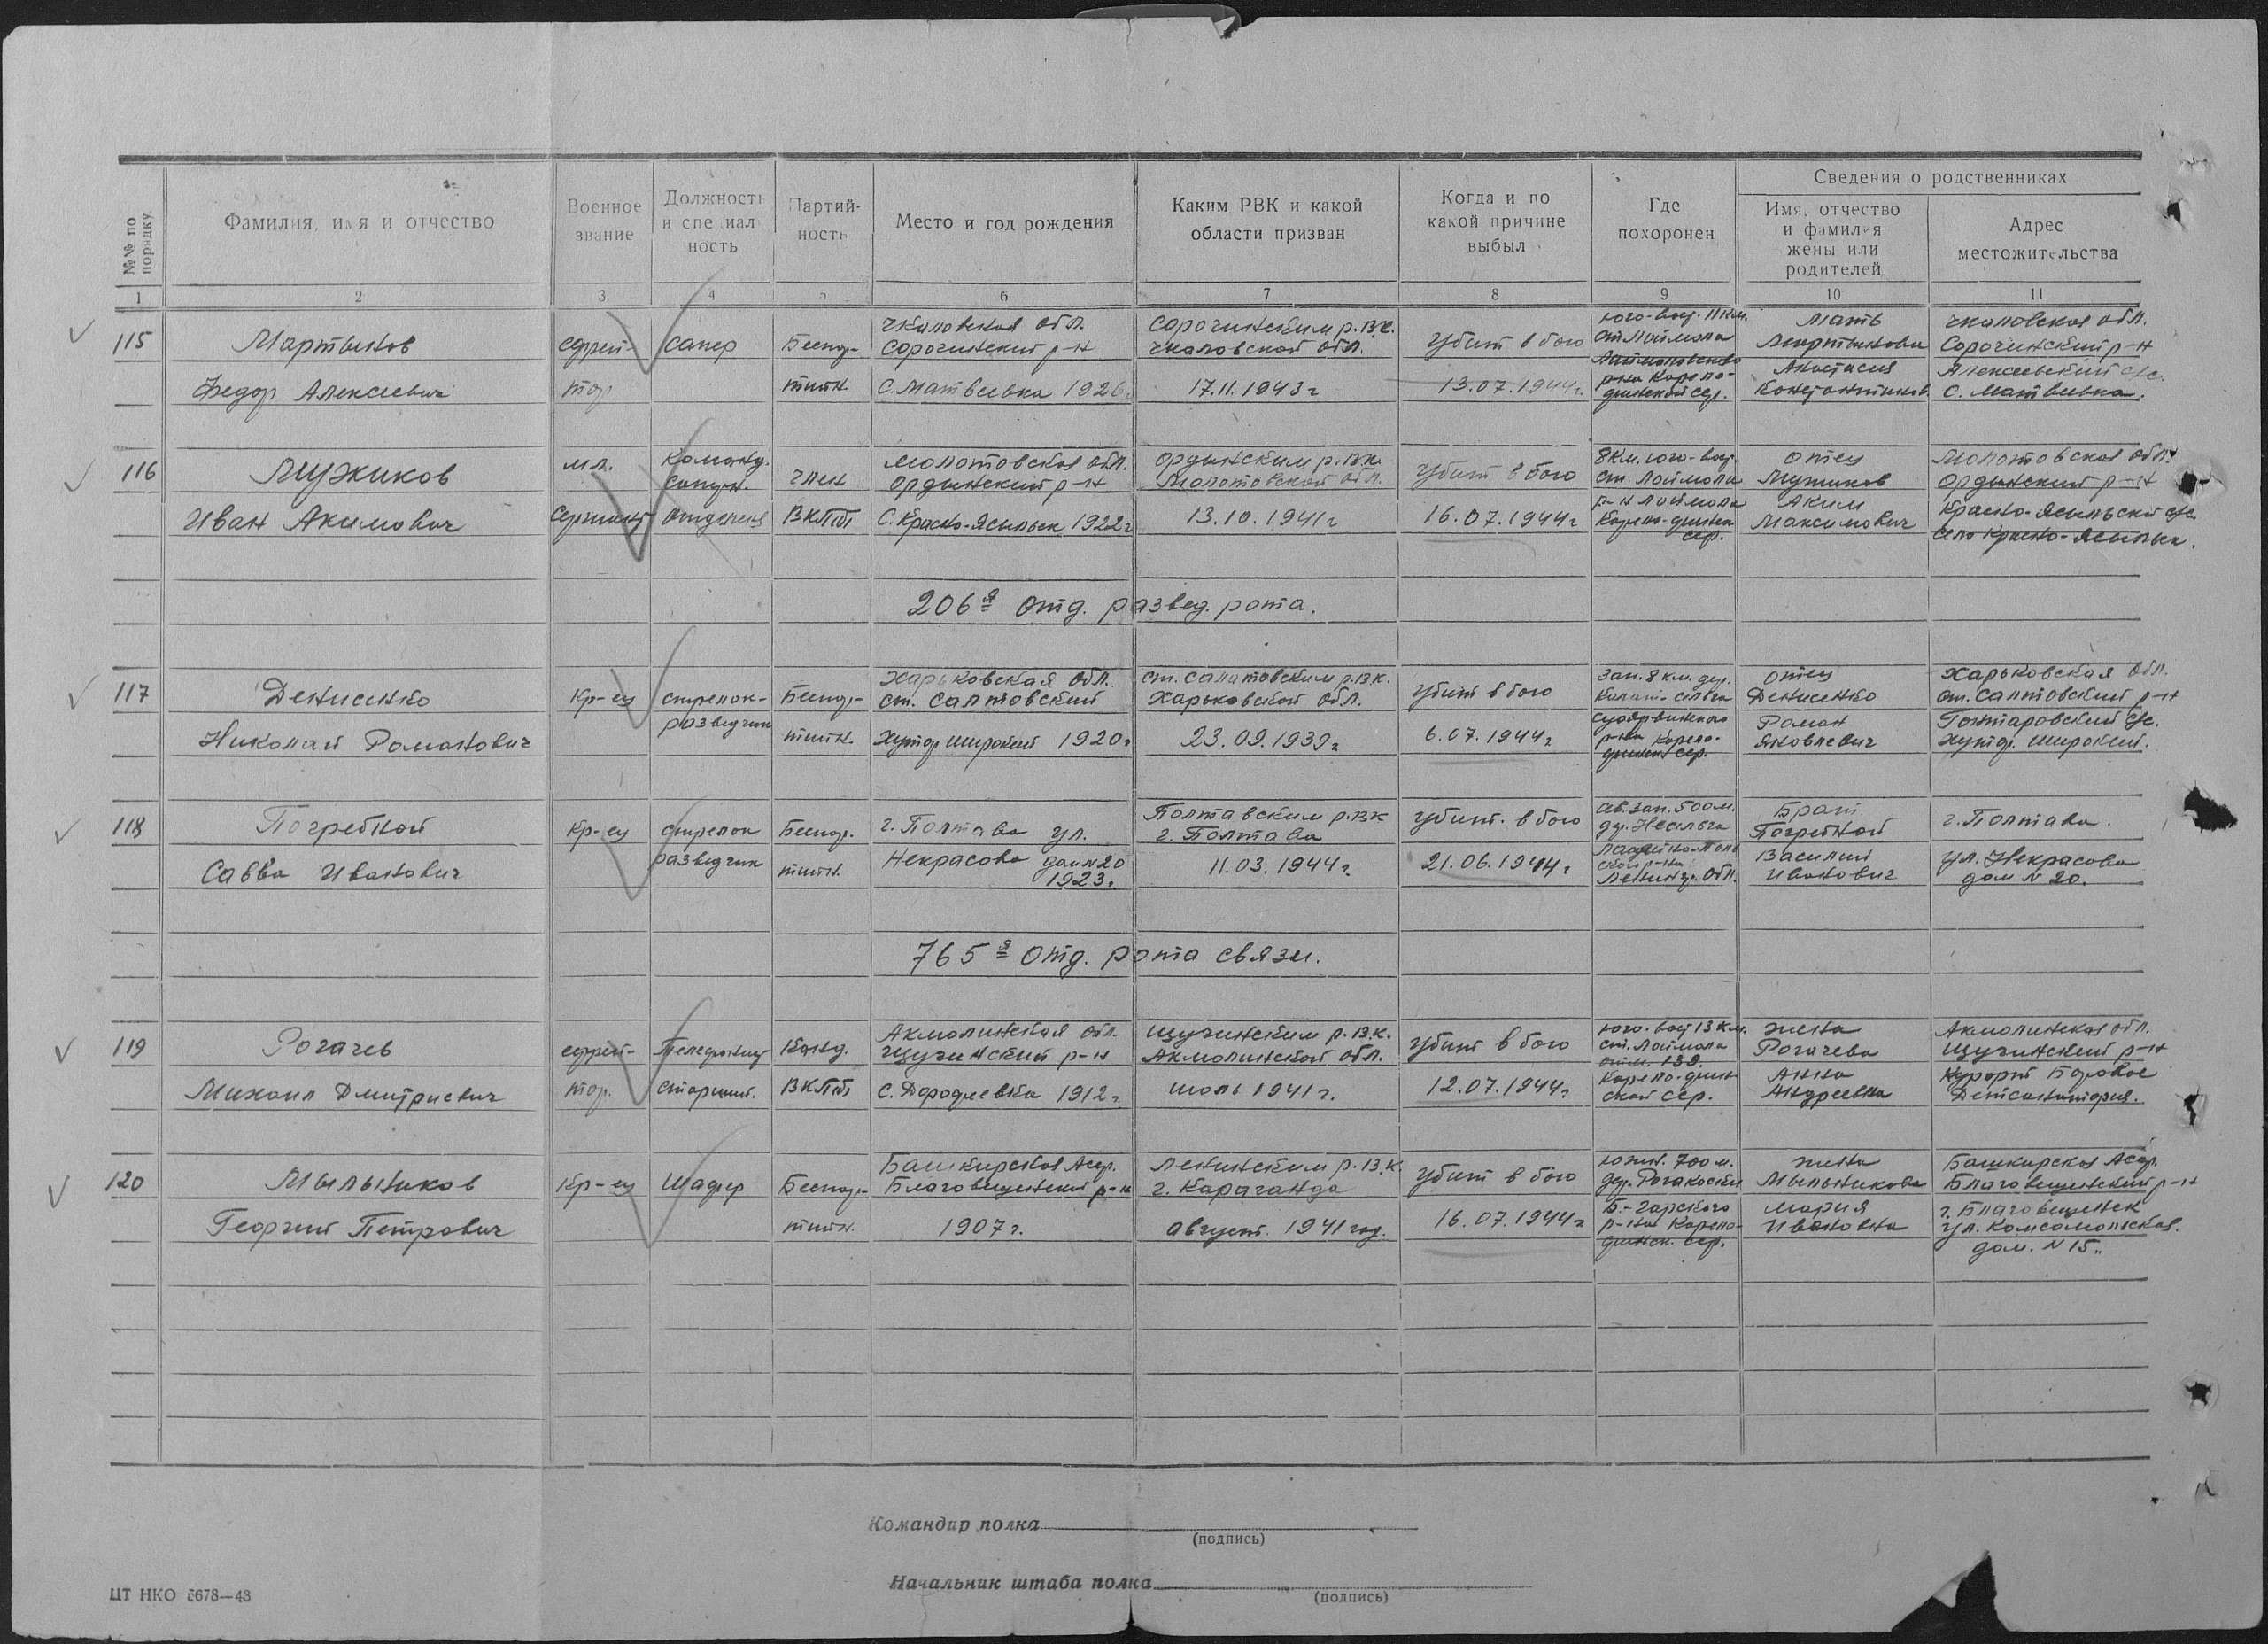 №№ по порядку
Фамилия, имя и отчество
Военное звание
Должность и специальность
Партийность
Место и год рождения
Каким РВК и какой области призван
Когда и по какой причине выбыл
Где похоронен
Сведения о родственниках
Имя, отчество и фамилия жены или родителей
Адрес местожительства
1 2 3 4 5 6 7 8 9 10 11
115
Мартынов
Федор Алексеевич
ефрей-
тор
сапер
Беспар-
тийн.
Чкаловская обл.
Сорочинский р-н
с. Матвеевка 1926г
Сорочинским р.в.к.
Чкаловской обл.
17.11.1943г
Убит в бою
13.07.1944г.
юго-вост. 11 км.
ст. Лоймола
р-на Карело-
финской сср.
Мать
Мартынова
Анастасия
Чкаловская обл.
Сорочинский р-н
Алексеевский с/с.
с. Матвеевка.
116
Мужиков
Иван Акимович
мл.
сержант
Команд.
отделения
член
ВКП(б)
Молотовская обл.
Ординский р-н
с. Красно-Ясыльск 1922г
Ординским р.в.к.
Молотовской обл.
13.10.1941г
Убит в бою
16.07.1944г
8 км. юго-вост.
ст. Лоймола
р-н Лоймола
Карело-финск
сср.
отец
Мужиков
Аким
Максимович
Молотовская обл.
Ординский р-н
Красно-Ясыльский с/с.
село Красно-Ясыльск.
206я отд. развед. рота.
117
Денисенко
Николай Романович
кр-ец
стрелок-
разведчик
Беспар-
тийн.
Харьковская обл.
ст. Салтовский
хутор Широкий 1920г
ст. Салатовским р.в.к.
Харьковской обл.
23.09.1939г
Убит в бою
6.07.1944г
зап. 8 км. дер.
Суоярвинского
р-на Карело-
финск сср.
отец
Денисенко
Роман
Яковлевич
Харьковская обл.
ст. Салтовский р-н
Гонтаровский с/с.
хутор. Широкий.
118
Погребной
Савва Иванович
кр-ец
стрелок
разведчик
Беспар.
тийн.
г. Полтава ул.
Некрасова дом № 20
1923г.
Полтавским р.вк
г. Полтава
11.03.1944г.
Убит. в бою
21.06.1944г
св. зап. 500 м.
Ленингр. обл.
Брат
Погребной
Василий
Иванович
г. Полтава.
ул. Некрасова
дом № 20.
765я отд. рота связи.
119
Рогачев
Михаил Дмитриевич
ефрей-
тор.
телефонист
старший.
Канд.
ВКП(б)
Акмолинская обл.
Щучинский р-н
с. Дорофеевка 1912г.
Щучинским р.в.к.
Акмолинской обл.
июль 1941г.
Убит в бою
12.07.1944г.
юго-вост 13 км.
ст. Лоймола
отм. 139.
Карело-фин
ской сср.
жена
Рогачева
Анна
Андреевна
Акмолинская обл.
Щучинский р-н
Курорт Боровое
Детсанатория.
120
Мыльников
Георгий Петрович
кр-ец
Шофер
Беспар-
тийн.
Башкирская Асср.
Благовещенский р-н
1907г.
Ленинским р.в.к.
г. Караганда
август. 1941 год.
Убит в бою
16.07.1944г
южн. 700 м.
р-на Карело-
финск. сср.
жена
Мыльникова
Мария
Ивановна
Башкирская Асср.
Благовещенский р-н
г. Благовещенск
ул. Комсомольская.
дом. № 15.
Командир полка
(подпись)
Начальник штаба полка
(подпись)
ЦТ НКО 5678—43